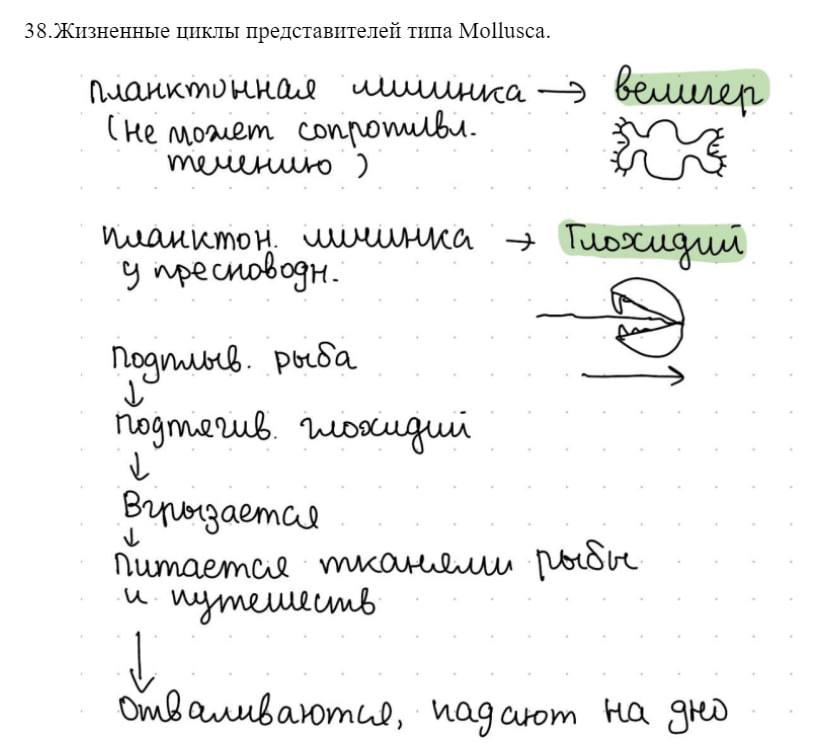 38.Жизненные циклы представителей типа Mollusca.
планктонная личинка → велигер
(не может сопротивл.
течению)
планктон. личинка → Глохидий
у пресноводн.
Подплыв. рыба
↓
Подтягив. глохидий
↓
Вгрызается
↓
Питается тканями рыбы
и путешеств
↓
Отваливаются, падают на дно